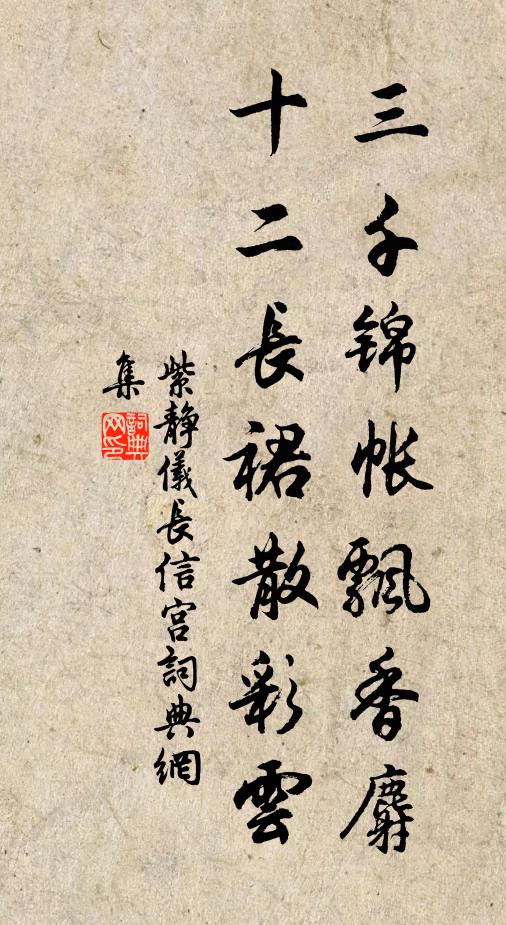 三千錦帳飄香麝
十二長裙散彩雲
紫静儀長信宮詞典網
集
詞典
网印